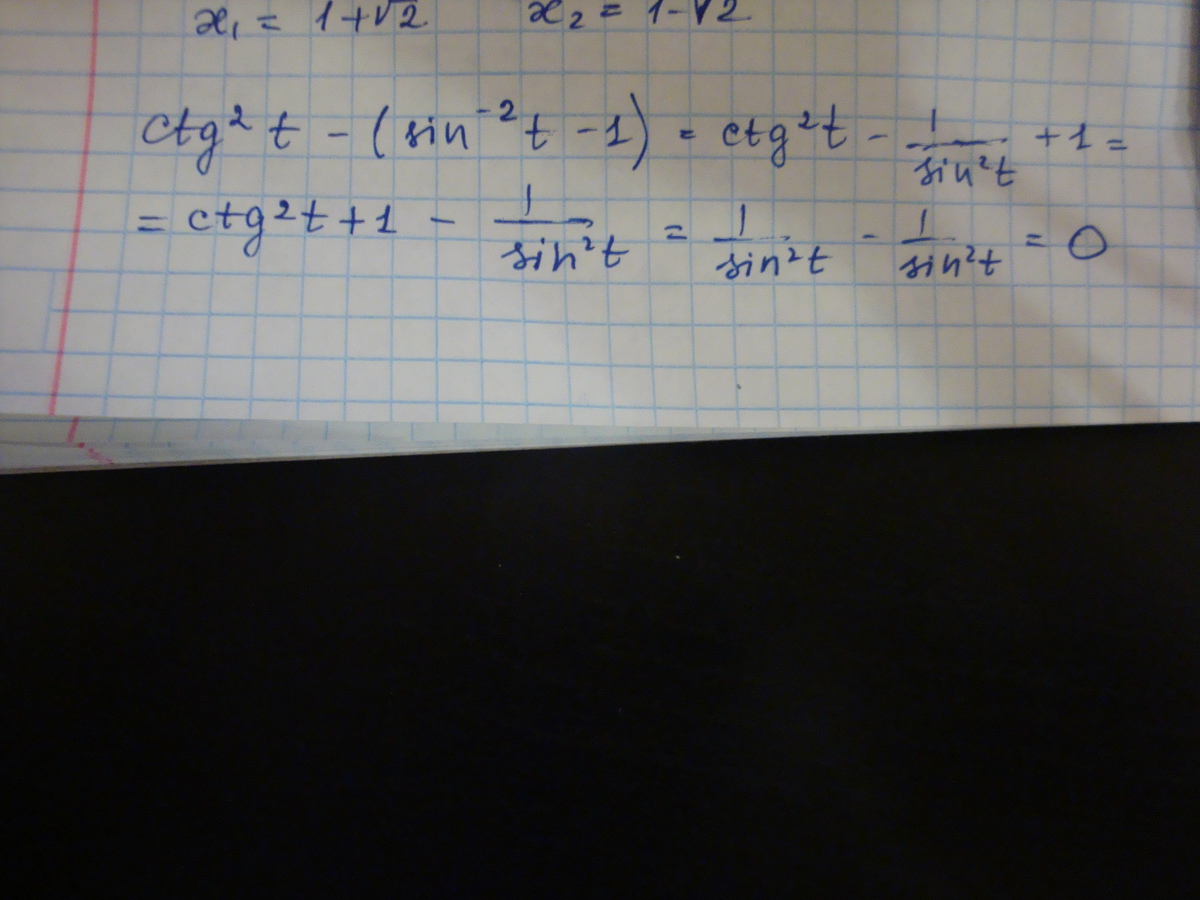 x₁ = 1+√2 x₂ = 1-√2
ctg² t - (sin⁻² t - 1) = ctg² t - 1/sin² t + 1 =
= ctg² t + 1 - 1/sin² t = 1/sin² t - 1/sin² t = 0